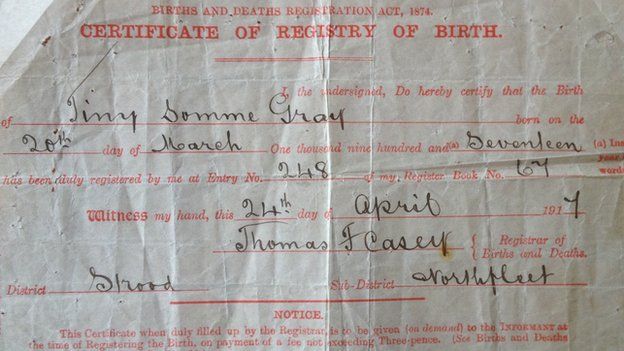 BIRTHS AND DEATHS REGISTRATION ACT, 1874.
CERTIFICATE OF REGISTRY OF BIRTH.
I, the undersigned, Do hereby certify that the Birth
of Tiny Somme Gray born on the
20th day of March One thousand nine hundred and (a) Seventeen (a) Ins
has been duly registered by me at Entry No. 248 of my Register Book No. 67 words
Witness my hand, this 24th day of April 1917
Thomas F Casey { Registrar of
Births and Deaths.
District Strood Sub-District Northfleet
NOTICE.
This Certificate when duly filled up by the Registrar, is to be given (on demand) to the INFORMANT at
the time of Registering the Birth, on payment of a fee not exceeding Three-pence. (See Births and Deaths